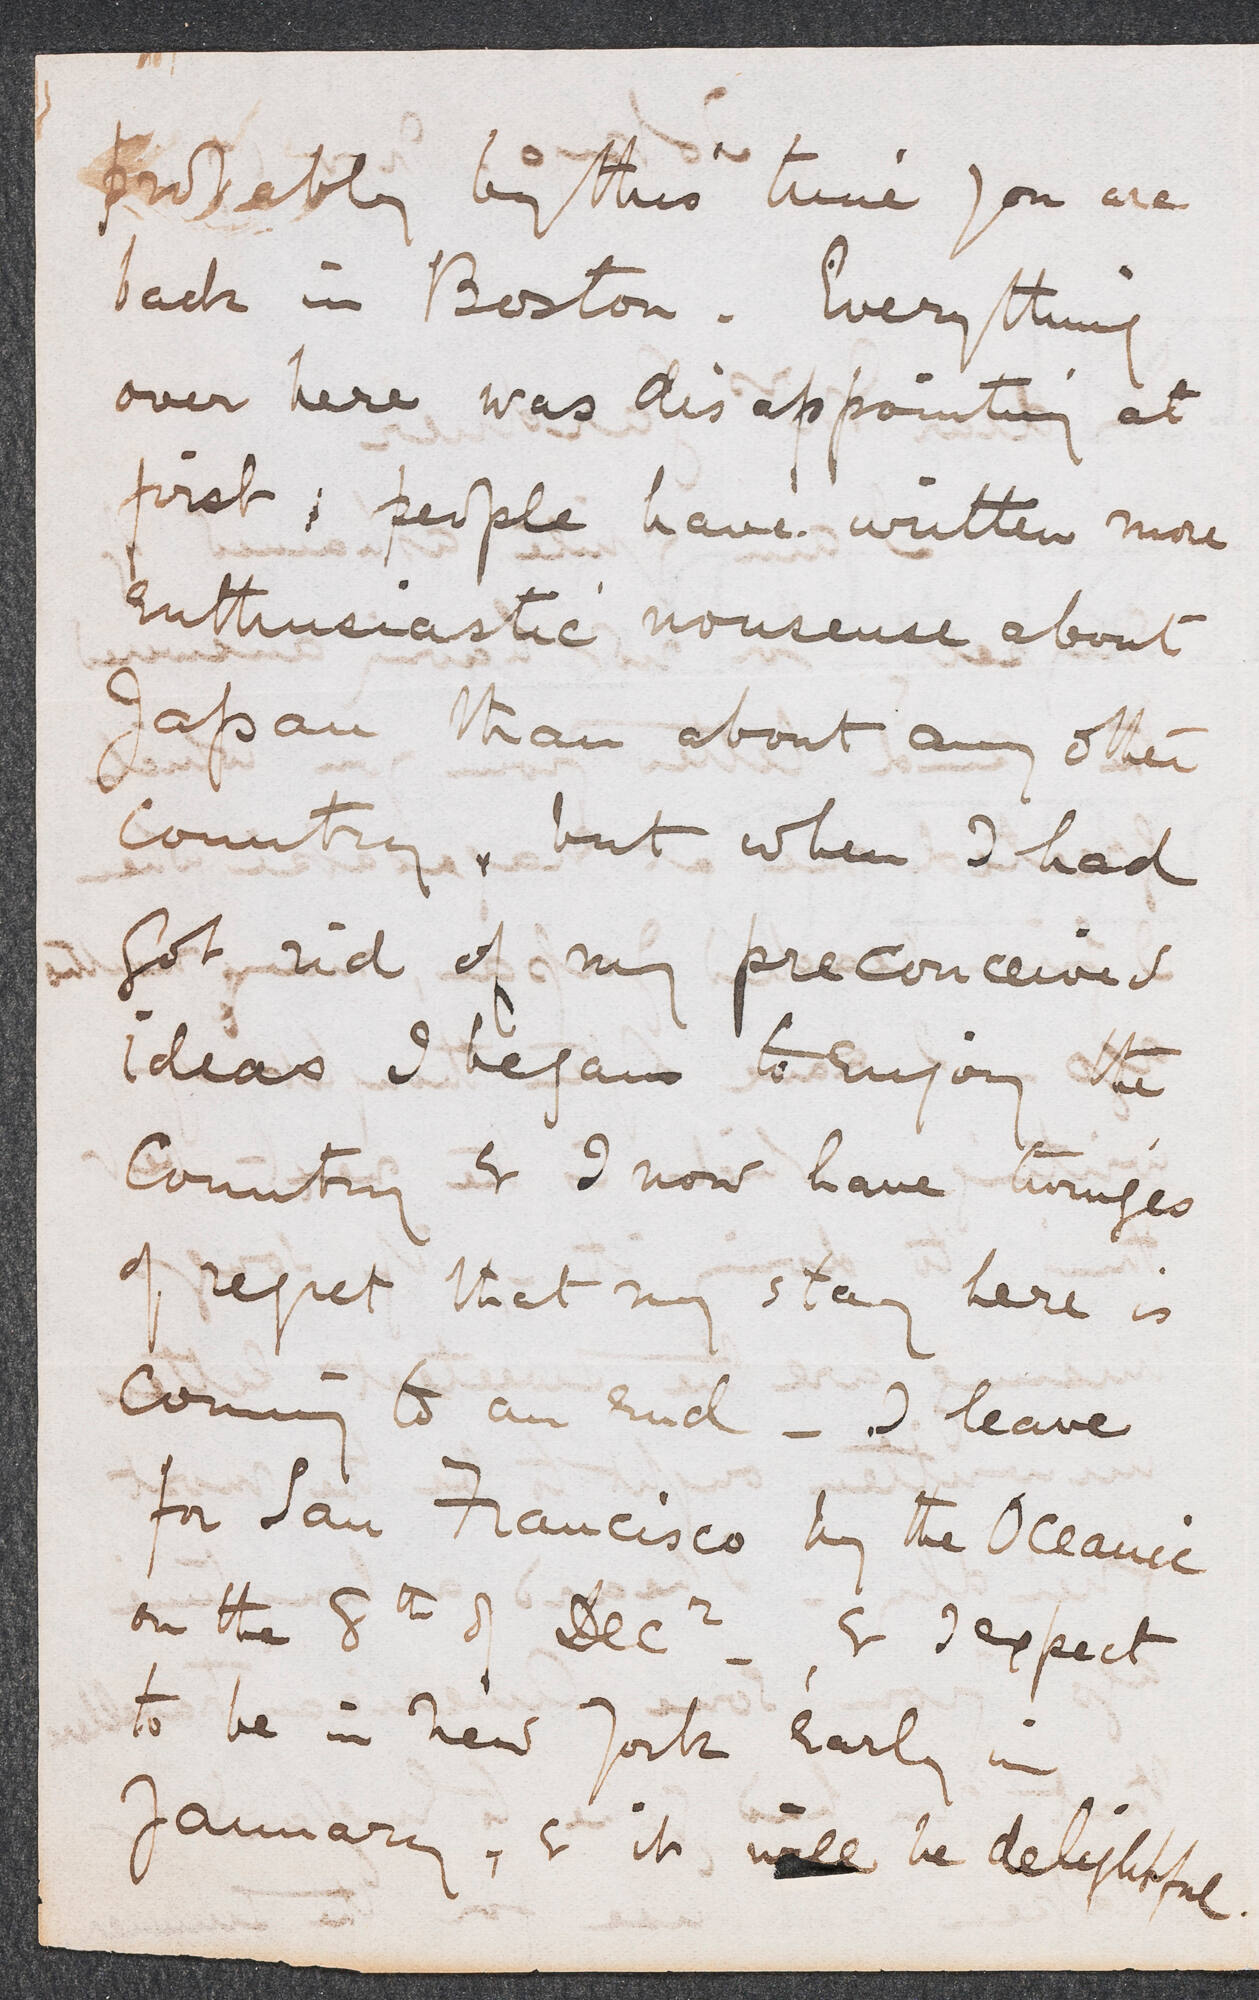 probably by this time you are
back in Boston. Everything
over here was disappointing at
first; people have written more
enthusiastic nonsense about
Japan than about any other
country, but when I had
got rid of my preconceived
ideas I began to enjoy the
country & I now have twinges
of regret that my stay here is
coming to an end – I leave
for San Francisco by the Oceanic
on the 8th of Decr – & I expect
to be in New York early in
January, & it will be delightful.